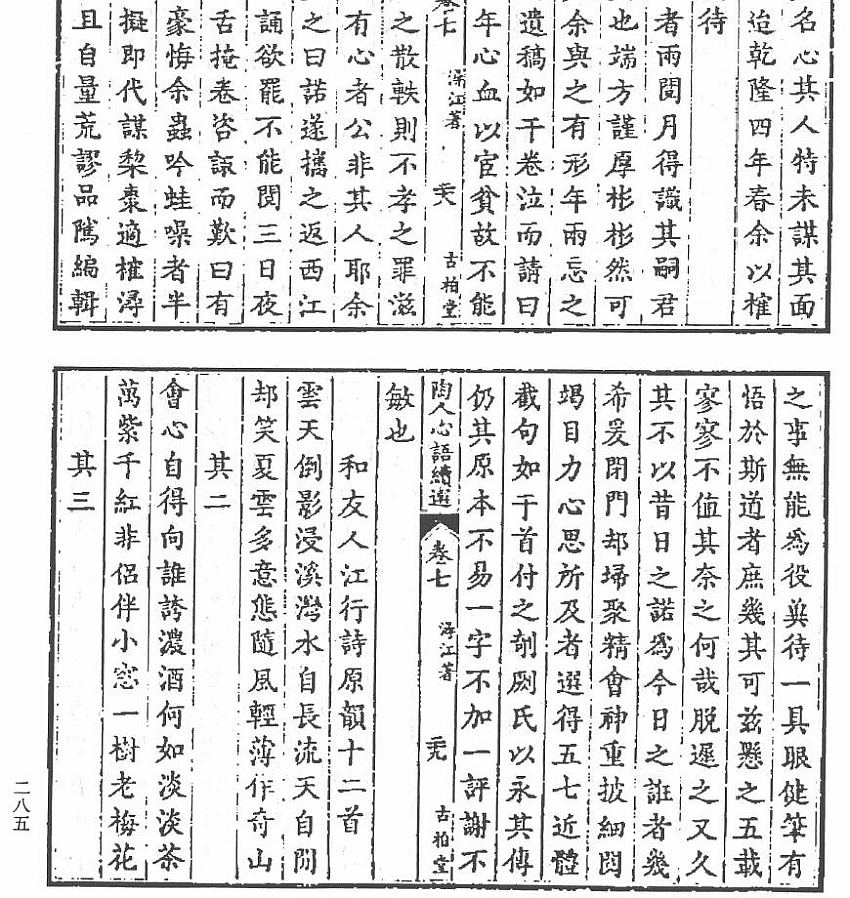 名心其人特未謀其面
迨乾隆四年春余以榷
待
者兩閱月得識其嗣君
也端方謹厚彬彬然可
余與之有形年兩忘之
遺稿如干卷泣而請曰
年心血以宦貧故不能
卷七 潯江著 天 古柏堂
之散軼則不孝之罪滋
有心者公非其人耶余
之曰諾遂攜之返西江
誦欲罷不能閱三日夜
舌掩卷咨諏而歎曰有
豪悔余蟲吟蛙噪者半
擬即代謀棃棗適榷潯
且自量荒謬品隲編輯
之事無能爲役冀待一具眼健筆有
悟於斯道者庶幾其可茲懸之五載
寥寥不値其奈之何哉脱遲之又久
其不以昔日之諾爲今日之誑者幾
希爰閉門却埽聚精會神重披細閱
竭目力心思所及者選得五七近體
截句如干首付之剞劂氏以永其傳
仍其原本不易一字不加一評謝不
陶人心語續選 卷七 潯江著 元 古柏堂
敏也
和友人江行詩原韻十二首
雲天倒影浸溪灣水自長流天自閒
却笑夏雲多意態隨風輕薄作奇山
其二
會心自得向誰誇濃酒何如淡淡茶
萬紫千紅非侣伴小窓一樹老梅花
其三
二八五